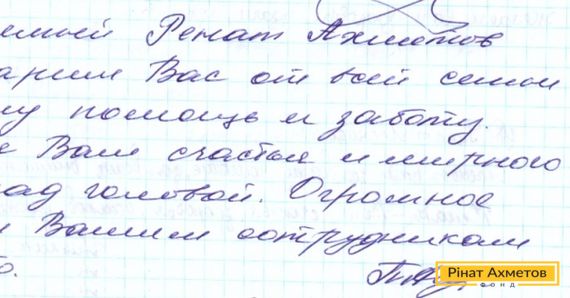 емый Ренат Ахметов
арим Вас от всей семьи
му помощь и заботу.
е Вам счастья и мирного
ад головой. Огромное
и Вашим сотрудникам
о.
Рінат Ахметов
ФОНД